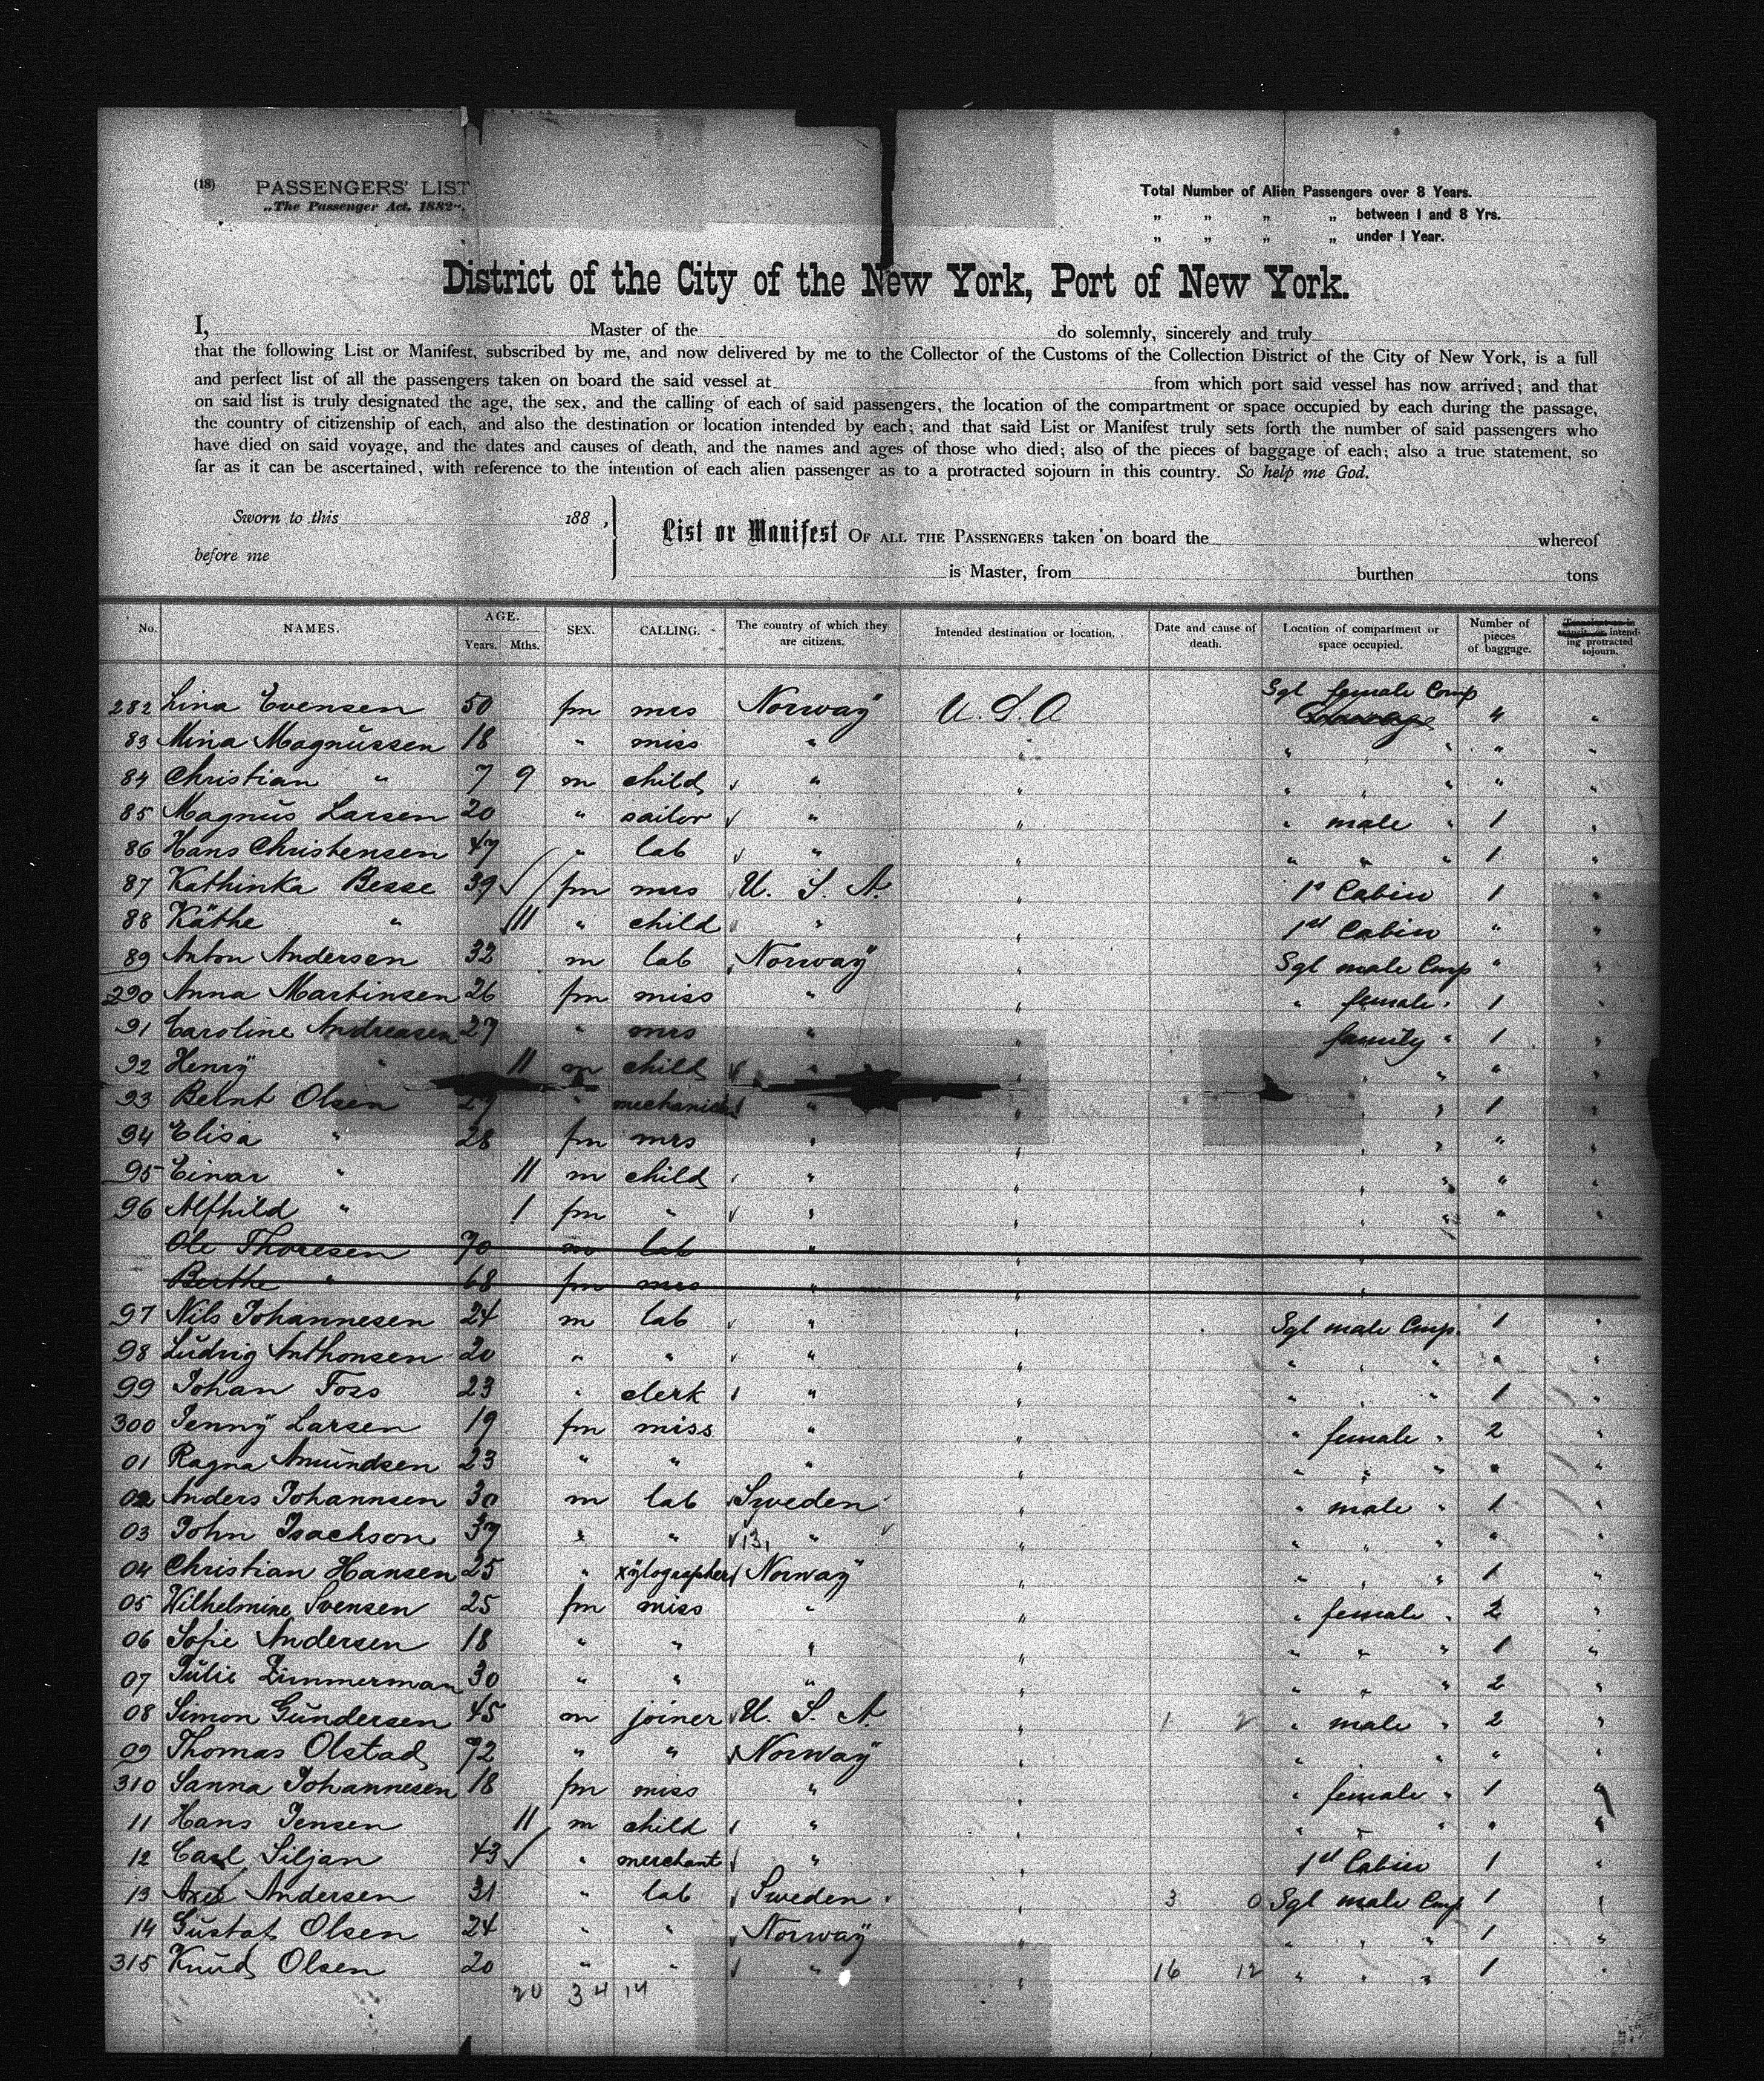 (18) PASSENGERS' LIST
„The Passenger Act, 1882".
Total Number of Alien Passengers over 8 Years.
„ „ „ „ between 1 and 8 Yrs.
„ „ „ „ under 1 Year.
District of the City of the New York, Port of New York.
I, Master of the do solemnly, sincerely and truly
that the following List or Manifest, subscribed by me, and now delivered by me to the Collector of the Customs of the Collection District of the City of New York, is a full
and perfect list of all the passengers taken on board the said vessel at from which port said vessel has now arrived; and that
on said list is truly designated the age, the sex, and the calling of each of said passengers, the location of the compartment or space occupied by each during the passage,
the country of citizenship of each, and also the destination or location intended by each; and that said List or Manifest truly sets forth the number of said passengers who
have died on said voyage, and the dates and causes of death, and the names and ages of those who died; also of the pieces of baggage of each; also a true statement, so
far as it can be ascertained, with reference to the intention of each alien passenger as to a protracted sojourn in this country. So help me God.
Sworn to this 188 ,
before me
List or Manifest OF ALL THE PASSENGERS taken on board the whereof
is Master, from burthen tons
No. NAMES. AGE. Years. Mths. SEX. CALLING. The country of which they are citizens. Intended destination or location. Date and cause of death. Location of compartment or space occupied. Number of pieces of baggage. intending protracted sojourn.
282 Lina Evensen 50 fm mrs Norway U. S. A Sgl female Comp "
83 Mina Magnussen 18 " miss " " " " " "
84 Christian " 7 9 m child " " " " " " "
85 Magnus Larsen 20 " sailor " " " male " 1 "
86 Hans Christensen 47 " lab " " " " " 1 "
87 Kathinka Besse 39 fm mrs U. S. A. " 1st Cabin 1 "
88 Käthe " 11 " child " " 1st Cabin " "
89 Anton Andersen 32 m lab Norway " Sgl male Comp " "
290 Anna Martinsen 26 fm miss " " " female " 1 "
91 Caroline Andreasen 27 " mrs " " family " 1 "
92 Henry " 11 m child " " " " " "
93 Bernt Olsen 27 " mechanic " " " " 1 "
94 Elisa " 28 fm mrs " " " " "
95 Einar " 11 m child " " " " " "
96 Alfhild " 1 fm " " " " " " "
Ole Thoresen 70 m lab " " "
Berthe " 68 fm mrs " " "
97 Nils Johannesen 24 m lab " " Sgl male Comp. 1 "
98 Ludvig Anthonsen 20 " " " " " " " " "
99 Johan Foss 23 " clerk " " " " " 1 "
300 Jenny Larsen 19 fm miss " " " female " 2 "
01 Ragna Amundsen 23 " " " " " " " " "
02 Anders Johannsen 30 m lab Sweden " " male " 1 "
03 John Isachson 37 " " 13, " " " " " " "
04 Christian Hansen 25 " xylographer Norway " " " " 1 "
05 Wilhelmine Svensen 25 fm miss " " " female " 2 "
06 Sofie Andersen 18 " " " " " " " 1 "
07 Julie Zimmerman 30 " " " " " " " 2 "
08 Simon Gundersen 45 m joiner U. S. A. " 1 2 " male " 2 "
09 Thomas Olstad 72 " " Norway " " " " " "
310 Sanna Johannesen 18 fm miss " " " female " 1 "
11 Hans Jensen 11 m child " " " " " " "
12 Carl Siljan 43 " merchant " " 1st Cabin 1 "
13 Axel Andersen 31 " lab Sweden " 3 0 Sgl male Comp 1 "
14 Gustaf Olsen 24 " " Norway " " " " 1 "
315 Knud Olsen 20 " " " " 16 12 " " " 1 "
20 34 14